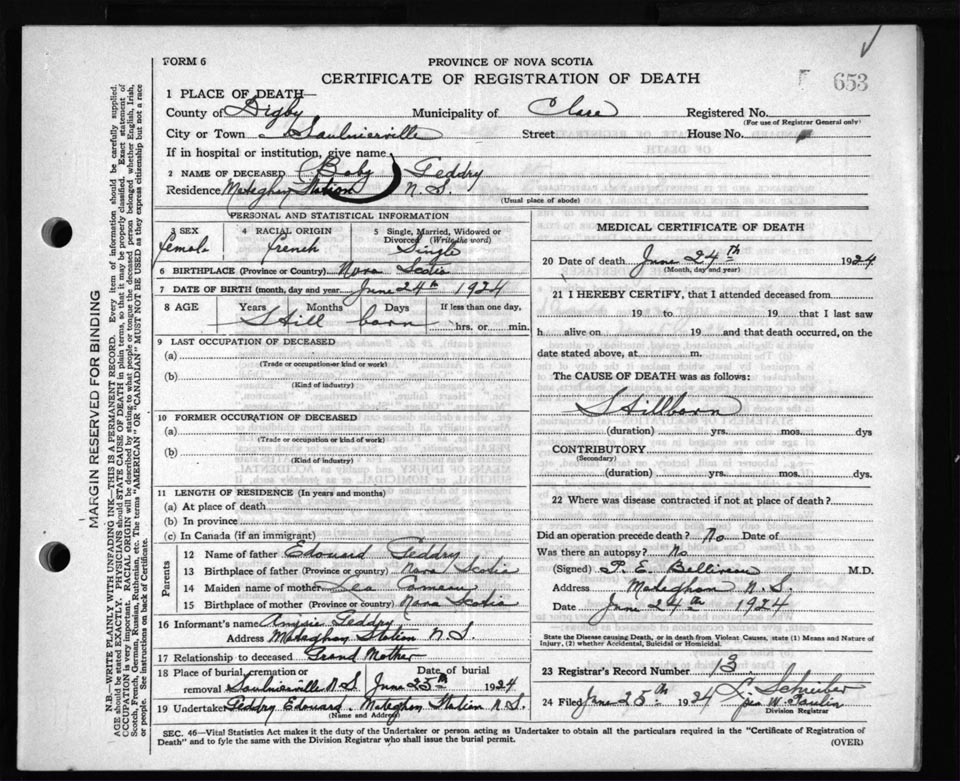 FORM 6
PROVINCE OF NOVA SCOTIA
CERTIFICATE OF REGISTRATION OF DEATH
653
1 PLACE OF DEATH—
County of Digby Municipality of Clare Registered No.
(For use of Registrar General only)
City or Town Saulnierville Street House No.
If in hospital or institution, give name
2 NAME OF DECEASED (Baby) Geddry
Residence Meteghan Station N. S.
(Usual place of abode)
PERSONAL AND STATISTICAL INFORMATION
3 SEX 4 RACIAL ORIGIN 5 Single, Married, Widowed or Divorced (Write the word)
female french Single
6 BIRTHPLACE (Province or Country) Nova Scotia
7 DATE OF BIRTH (month, day and year) June 24th 1924
8 AGE Years Months Days If less than one day,
Still born hrs. or min.
9 LAST OCCUPATION OF DECEASED
(a)
(Trade or occupation or kind of work)
(b)
(Kind of industry)
10 FORMER OCCUPATION OF DECEASED
(a)
(Trade or occupation or kind of work)
(b)
(Kind of industry)
11 LENGTH OF RESIDENCE (In years and months)
(a) At place of death
(b) In province
(c) In Canada (if an immigrant)
Parents
12 Name of father Edouard Geddry
13 Birthplace of father (Province or country) Nova Scotia
14 Maiden name of mother Lea Comeau
15 Birthplace of mother (Province or country) Nova Scotia
16 Informant's name Geddry
Address Meteghan Station N S.
17 Relationship to deceased Grand Mother
18 Place of burial, cremation or removal Saulnierville N.S. Date of burial June 25th 1924
19 Undertaker Geddry Edouard. Meteghan Station N S.
(Name and Address)
MEDICAL CERTIFICATE OF DEATH
20 Date of death June 24th 1924
(Month, day and year)
21 I HEREBY CERTIFY, that I attended deceased from
19 to 19 that I last saw
h alive on 19 and that death occurred, on the
date stated above, at m.
The CAUSE OF DEATH was as follows:
Stillborn
(duration) yrs. mos. dys
CONTRIBUTORY
(Secondary)
(duration) yrs. mos. dys.
22 Where was disease contracted if not at place of death?
Did an operation precede death? No Date of
Was there an autopsy? No
(Signed) P. E. Belliveau M.D.
Address Meteghan N. S.
Date June 24th 1924
State the Disease causing Death, or in death from Violent Causes, state (1) Means and Nature of
Injury, (2) whether Accidental, Suicidal or Homicidal.
23 Registrar's Record Number 13
24 Filed June 25th 1924 Schreiber
W. Paulin
Division Registrar
SEC. 46—Vital Statistics Act makes it the duty of the Undertaker or person acting as Undertaker to obtain all the particulars required in the "Certificate of Registration of
Death" and to fyle the same with the Division Registrar who shall issue the burial permit.
(OVER)
MARGIN RESERVED FOR BINDING
N.B.—WRITE PLAINLY WITH UNFADING INK—THIS IS A PERMANENT RECORD. Every item of information should be carefully supplied.
AGE should be stated EXACTLY. PHYSICIANS should STATE CAUSE OF DEATH in plain terms, so that it may be properly classified. Exact statement of
OCCUPATION is very important. RACIAL ORIGIN will be described by stating to what people or tongue the deceased person belonged whether English, Irish,
Scotch, French, German, Russian, Ruthenian, etc. The terms "AMERICAN" OR "CANADIAN" MUST NOT BE USED as they express citizenship but not a race
or people. See instructions on back of Certificate.